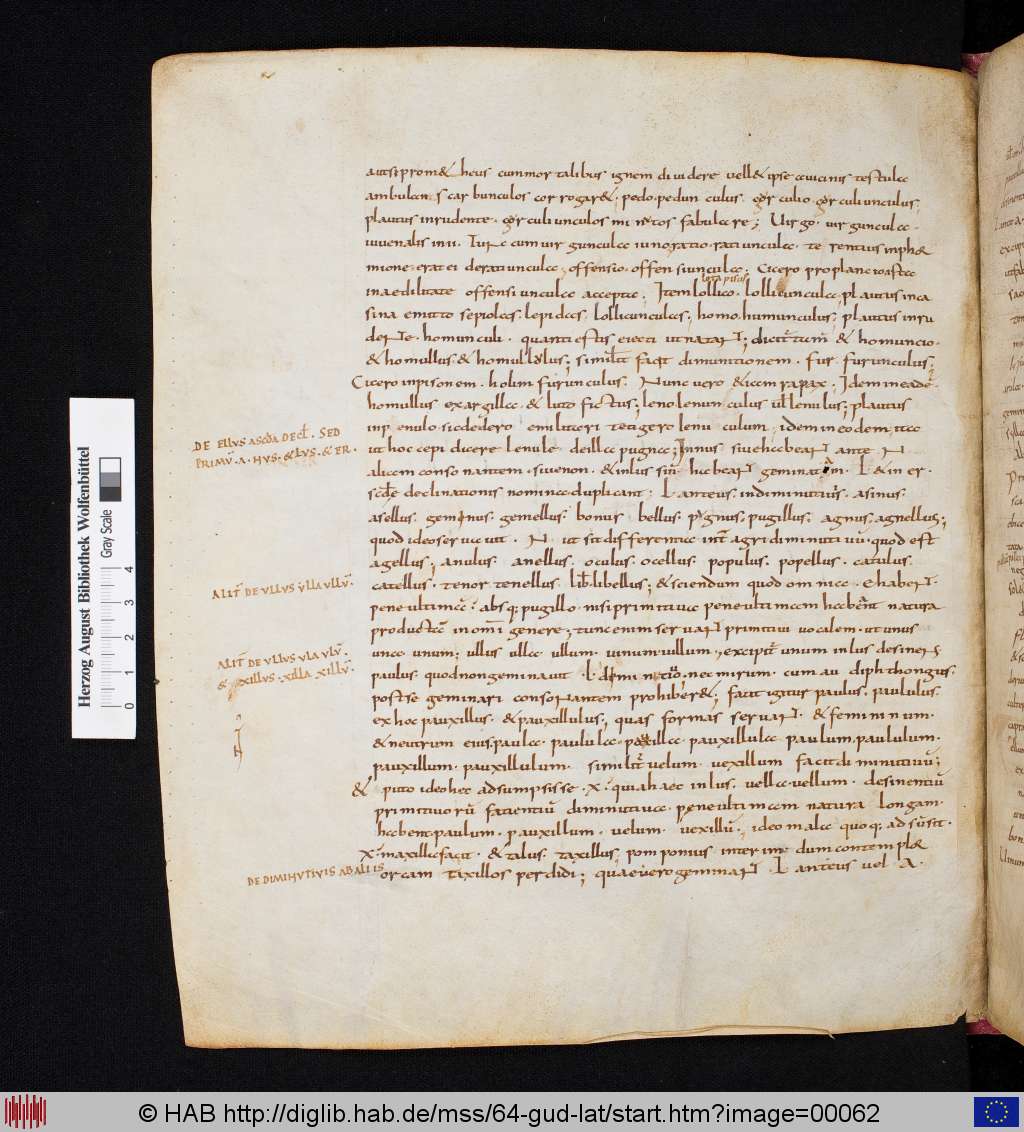 autse prom& heus cum mortalibus ignem diuidere uell& ipse auicinis testula
ambulans carbunculos corrogar&; pedo. pedunculus. gurculio. gurculiunculus;
plautus inrudente. gurculiunculos minutos fabulare; Uirgo. uirguncula.
iuuenalis in ii. Iura cum uirguncula iuno. ratio. ratiuncula. terentius inphor
mione. erat ei deratiuncula; offensio. offensiuncula; Cicero proplancio asta
inaedilitate offensiuncula accepta; Item lollico. lolliuncula, plautus inca
sina emitto sepiolas. lepidas. lolliunculas; homo. humunculus; plautus inru
dente. homunculi. quanti estis eiecti ut natant; dicit tum & homuncio.
& homullus. & homullulus; simil facit diminutionem. fur. furunculus;
Cicero inpisonem. holim furunculus. Nunc uero & iam rapax. Idem ineade
homullus exargilla. & luto fictus; leno. lenunculus uł lenulus; plautus
inp enulo. sicdedero emilitari teagero lenu culum, idem ineodem, ita
ut hoccepi dicere lenule deilla pugna; Innus siuehabeant ante N
aliam consonantem. siuenon. & inlus siue. habeant geminatam. L & in er.
scdae declinationis nomina duplicant; L anteus indiminitiuis. asinus.
asellus. geminus. gemellus. bonus bellus. pugnus, pugillus. agnus, agnellus;
quod ideo seruauit. N ut sit differentia int agri diminitiuu. quod est
agellus; anulus. anellus. oculus. ocellus. populus. popellus. catulus.
catellus. tenor tenellus. lib libellus; & sciendum quod omnia. e habent.
peneultima. absq; pugillo. nisi primitiua peneultimam habent natura
producta in omi genere, tunc enim seruant primitiui uocalem. ut unus
una. unum; ullus ulla. ullum. uinum. uillum; excipit unum inlus desinens
paulus. quod non geminauit. L diminutio. nec mirum. cum au diphthongus.
postse geminari consonantem prohiber&; facit igitur paulus. paululus.
ex hoc pauxillus. & pauxillulus; quas formas seruant. & femininum.
& neutrum eius. paula. paulula. pauxilla. pauxillula paulum, paululum.
pauxillum. pauxillulum. similit uelum. uexillum facit diminutiuu;
& puto ideo hec adsumpsisse. x. quia haec inlus. uella. uellum. desinentiu
primitiuoru facientiu diminitiua. peneultimam natura longam.
habent. paulum. pauxillum. uelum. uexillu; ideo mala quoq; adsusit.
X. maxilla facit. & talus. taxillus; pomponius interim dum contemplor
orcam taxillos perdidi; quae uero geminant. L anteus uel A.
iota pisces
DE ELLVS ASCDA DECL. SED
PRIMU. A. HVS. & LVS. & ER.
ALIT DE VLLVS VLLA VLLV.
ALIT DE VLLVS VLA VLV.
& XILLVS. XILLA XILLV.
DE DIMINVTIVIS AB ALIIS
Herzog August Bibliothek Wolfenbüttel
Gray Scale
0 1 2 3 4
© HAB http://diglib.hab.de/mss/64-gud-lat/start.htm?image=00062